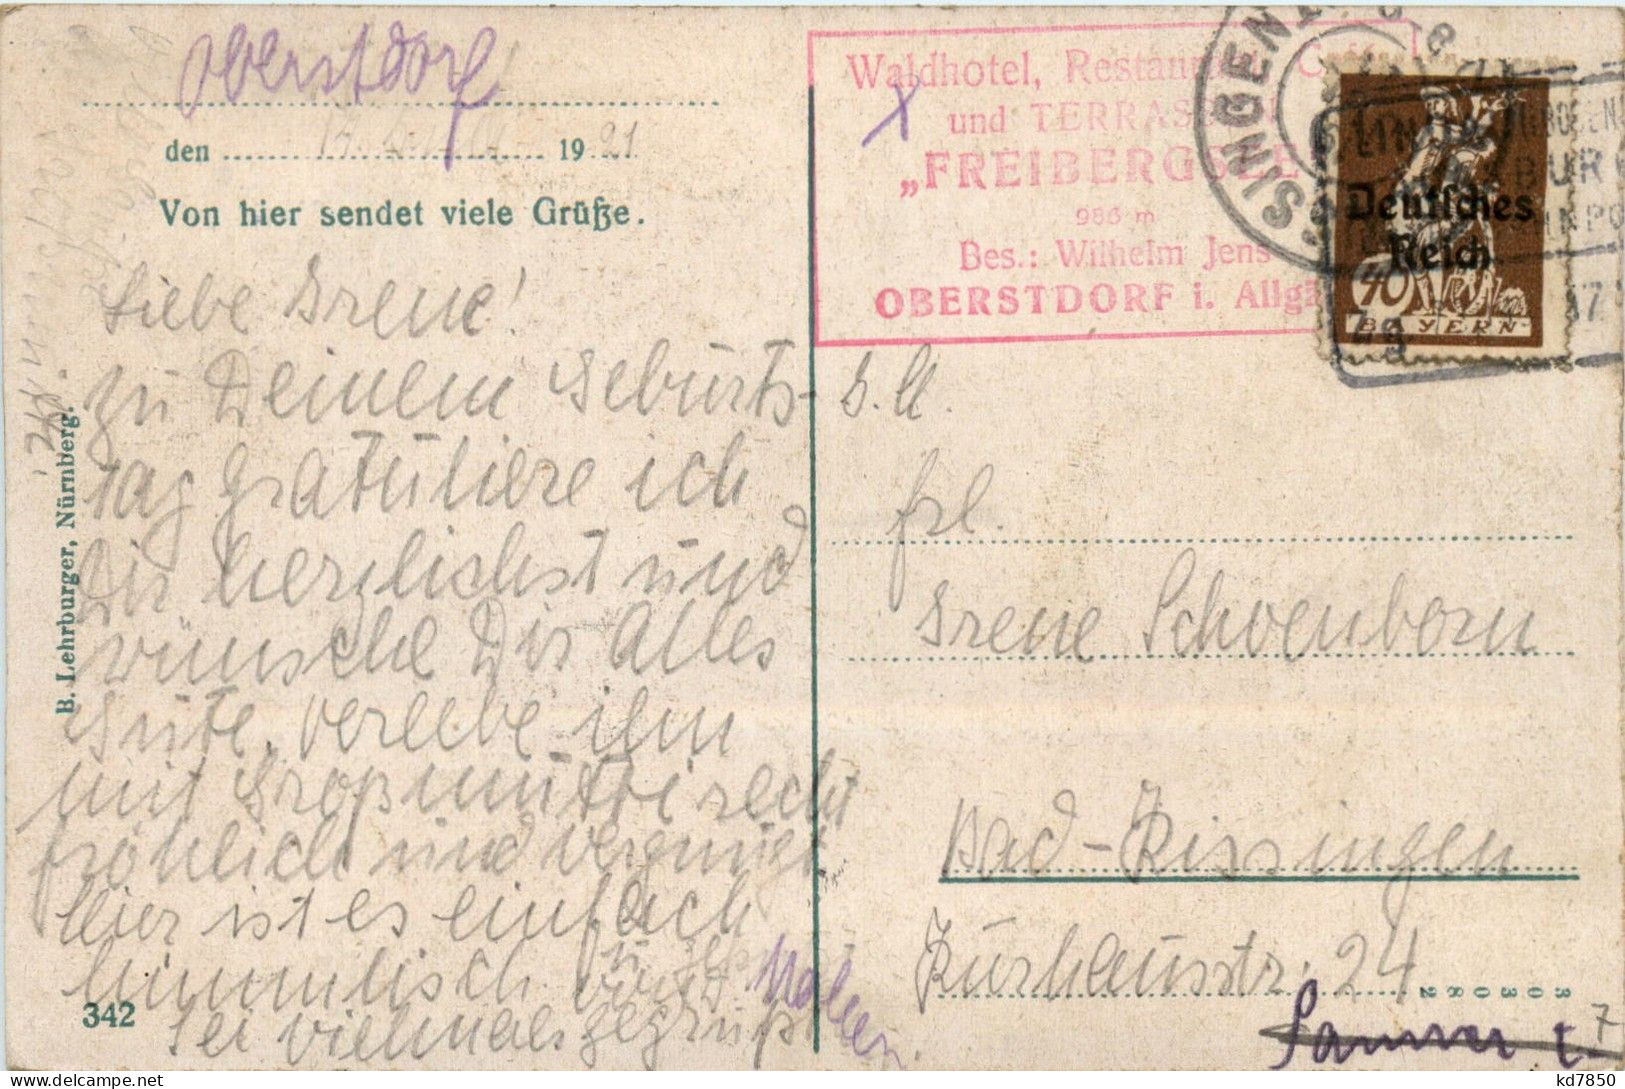 Oberstdorf
den 1921
Von hier sendet viele Grüße.
Liebe Irene!
zu Deinem Geburts-
tag gratuliere ich
Dir herzlichst und
wünsche Dir Alles
Gute, verlebe ihn
mit Großmutti recht
fröhlich und vergnügt
hier ist es einfach
himmlisch
sei vielmals gegrüßt
342
B. Lehrburger, Nürnberg.
Waldhotel, Restaurant, Café
und TERRASSEN
„FREIBERGSEE
986 m
Bes.: Wilhelm Jens
OBERSTDORF i. Allgä
SINGEN
Deutsches
Reich
40
BAYERN
Frl.
Irene Schoenborn
Bad-Kissingen
Kurhausstr. 24
303082
7
kd7850